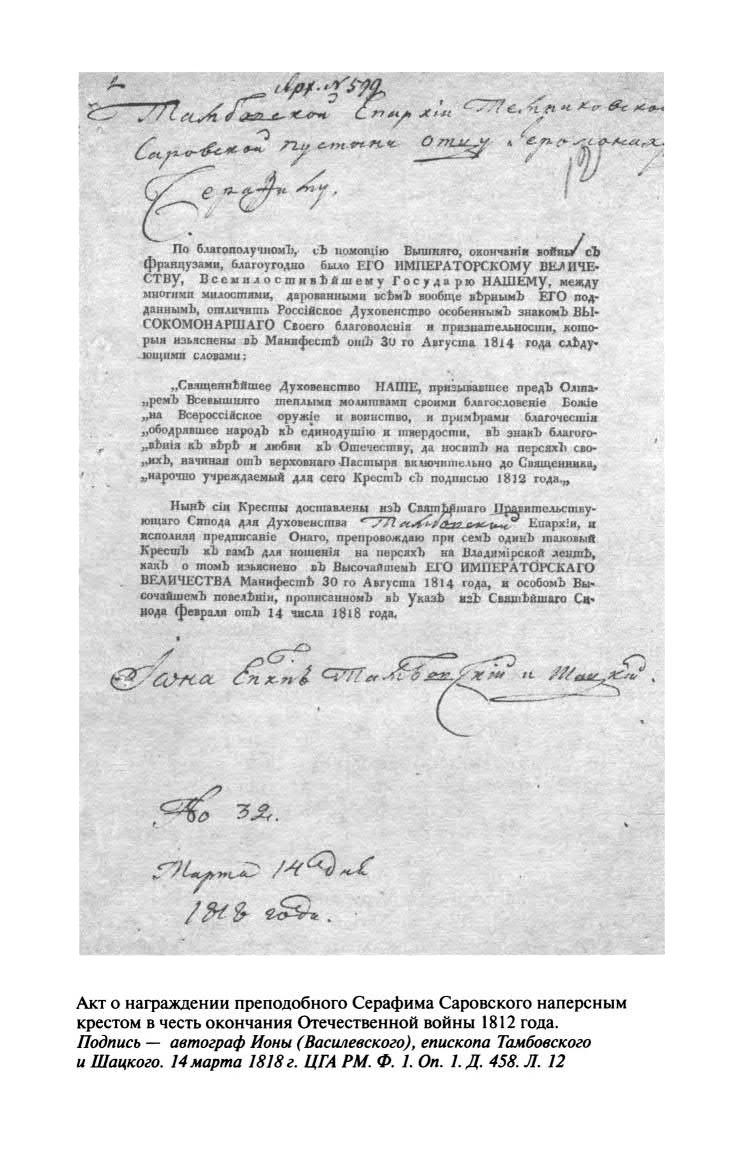 Арх. № 599
Тамбовской Епархіи Темниковской
Саровской пустыни отцу Іеромонаху
12
Серафиму.
По благополучномЪ, сЪ помощію Вышняго, окончаніи войны сЪ
Французами, благоугодно было ЕГО ИМПЕРАТОРСКОМУ ВЕЛИЧЕ-
СТВУ, ВсемилостивѢйшему Государю НАШЕМУ, между
многими милостями, дарованными всѢмЪ вообще вѢрнымЪ ЕГО под-
даннымЪ, отличить Россійское Духовенство особеннымЪ знакомЪ ВЫ-
СОКОМОНАРШАГО Своего благоволенія и признательности, кото-
рыя изъяснены вЪ МанифестѢ отЪ 30 го Августа 1814 года слѢду-
ющими словами:
„СвященнѢйшее Духовенство НАШЕ, призывавшее предЪ Олта-
„ремЪ Всевышняго теплыми молитвами своими благословеніе Божіе
„на Всероссійское оружіе и воинство, и примѢрами благочестія
„ободрявшее народЪ кЪ единодушію и твердости, вЪ знакЪ благого-
„вѢнія кЪ вѢрѢ и любви кЪ Отечеству, да носитЪ на персяхЪ сво-
„ихЪ, начиная отЪ верховнаго Пастыря включительно до Священника,
„нарочно учреждаемый для сего КрестЪ сЪ подписью 1812 года.„
НынѢ сіи Кресты доставлены изЪ СвятѢйшаго Правительству-
ющаго Синода для Духовенства Тамбовской Епархіи, и
исполняя предписаніе Онаго, препровождаю при семЪ одинЪ таковый
КрестЪ кЪ вамЪ для ношенія на персяхЪ на Владимірской лентѢ,
какЪ о томЪ изъяснено вЪ ВысочайшемЪ ЕГО ИМПЕРАТОРСКАГО
ВЕЛИЧЕСТВА МанифестѢ 30 го Августа 1814 года, и особомЪ Вы-
сочайшемЪ повелѢніи, прописанномЪ вЪ УказѢ изЪ СвятѢйшаго Си-
нода Февраля отЪ 14 числа 1818 года.
Іона Епкпъ Тамбовскій и Шацкій.
No 32.
Марта 14 дня
1818 года.
Акт о награждении преподобного Серафима Саровского наперсным
крестом в честь окончания Отечественной войны 1812 года.
Подпись — автограф Ионы (Василевского), епископа Тамбовского
и Шацкого. 14 марта 1818 г. ЦГА РМ. Ф. 1. Оп. 1. Д. 458. Л. 12